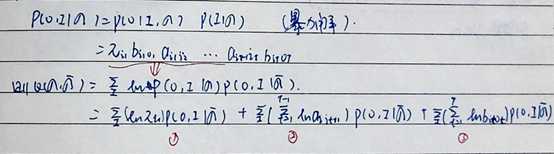 P(O,I|λ) = P(O|I,λ) P(I|λ) (暴力解).
= π_{i1} b_{i1o1} a_{i1i2} ⋯ a_{iT-1iT} b_{iToT}
则 Q(λ,λ̄) = Σ_I ln P(O,I|λ) P(O,I|λ̄).
= Σ_I (ln π_{i1}) P(O,I|λ̄) + Σ_I (Σ_{t=1}^{T-1} ln a_{itit+1}) P(O,I|λ̄) + Σ_I (Σ_{t=1}^{T} ln b_{itot}) P(O,I|λ̄)
① ② ③